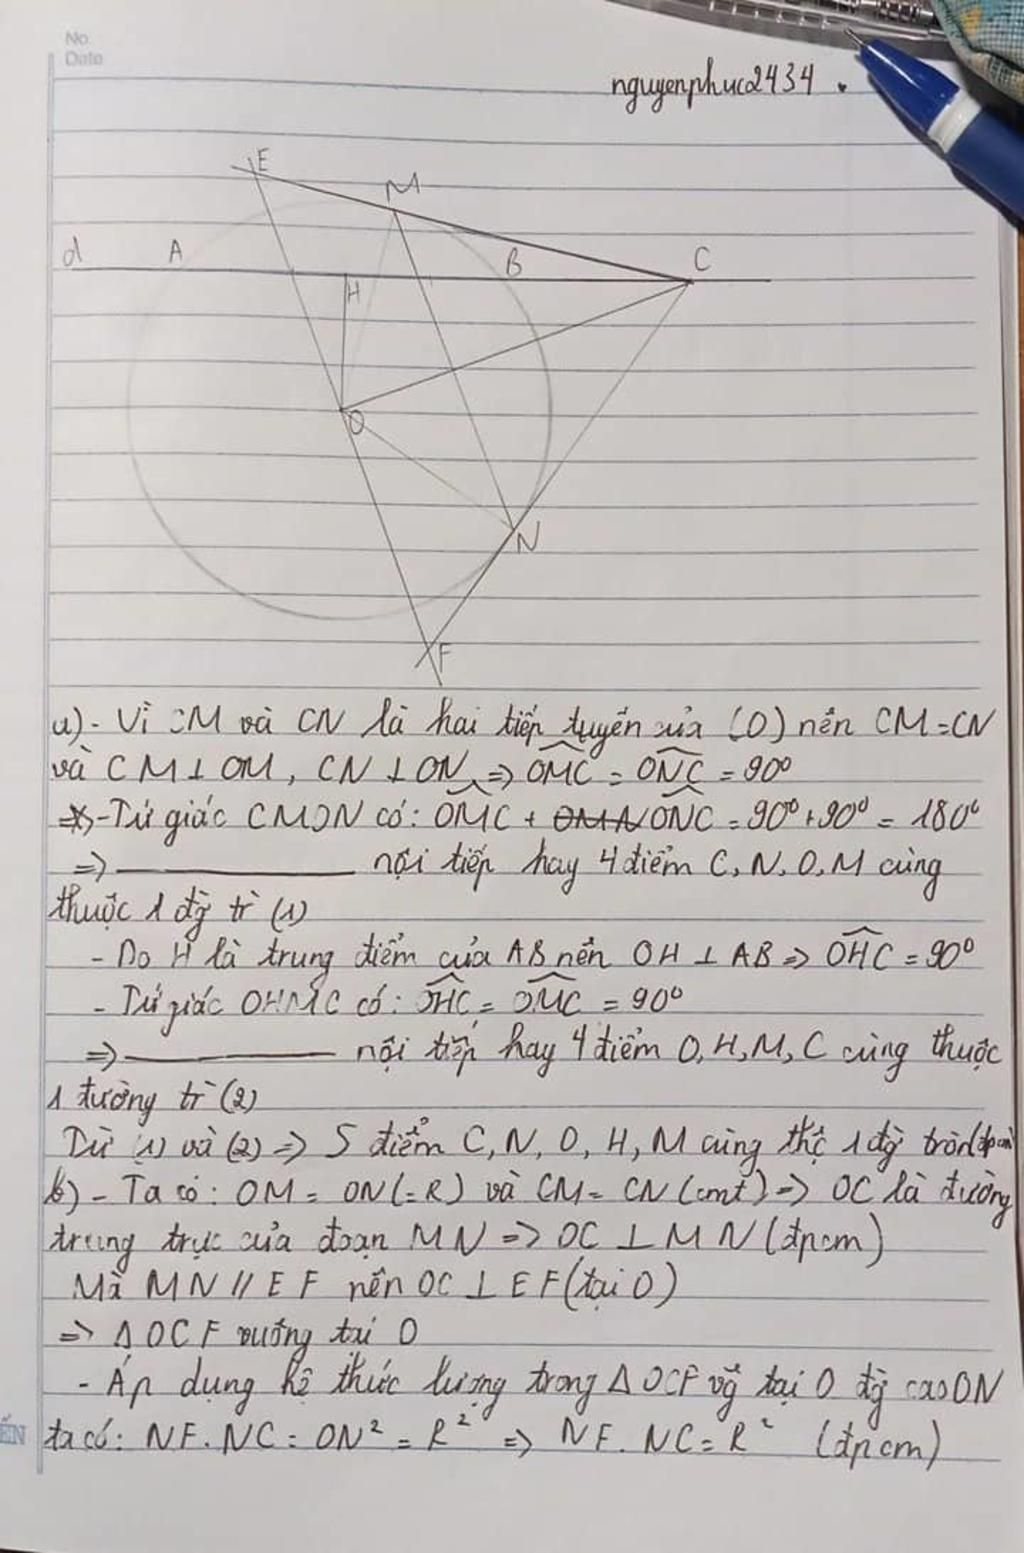 No.
Date
nguyenphuc2434
E
M
d A B C
H
O
N
F
a) - Vì CM và CN là hai tiếp tuyến của (O) nên CM = CN
và CM ⊥ OM, CN ⊥ ON, => OMC = ONC = 90°
*) - Tứ giác CMON có: OMC + OMN ONC = 90° + 90° = 180°
=> ———— nội tiếp hay 4 điểm C, N, O, M cùng
thuộc 1 đg tr (1)
- Do H là trung điểm của AB nên OH ⊥ AB => OHC = 90°
- Tứ giác OHMC có: OHC = OMC = 90°
=> ———— nội tiếp hay 4 điểm O, H, M, C cùng thuộc
1 đường tr (2)
Từ (1) và (2) => 5 điểm C, N, O, H, M cùng thộc 1 đg tròn (đpcm)
b) - Ta có: OM = ON (= R) và CM = CN (cmt) => OC là đường
trung trực của đoạn MN => OC ⊥ MN (đpcm)
Mà MN // EF nên OC ⊥ EF (tại O)
=> Δ OCF vuông tại O
- Áp dụng hệ thức lượng trong Δ OCF vg tại O đg cao ON
ta có: NF . NC = ON² = R² => NF . NC = R² (đpcm)